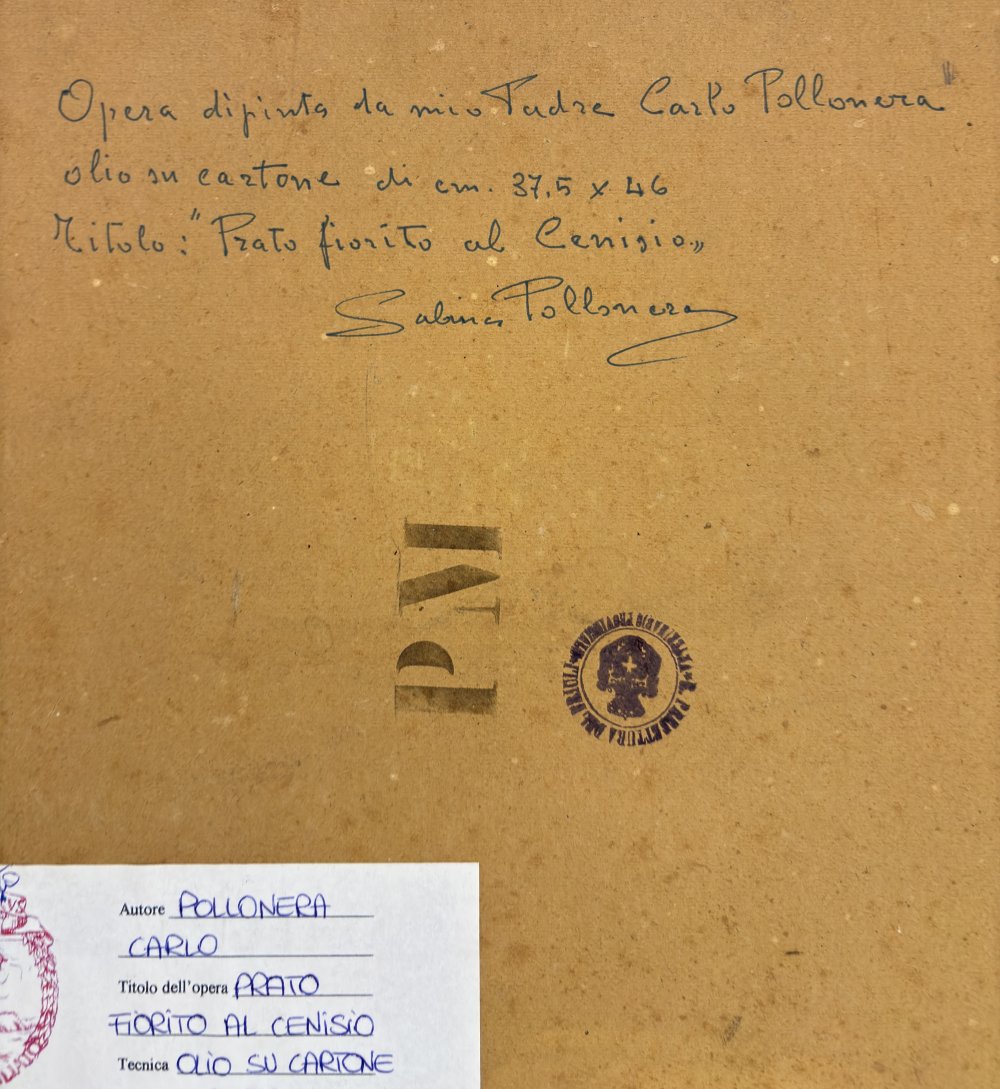 Opera dipinta da mio Padre Carlo Pollonera"
olio su cartone di cm. 37,5 x 46
Titolo: "Prato fiorito al Cenisio„
Sabina Pollonera
PM
R. PREFETTURA DEL FRIULI
Autore POLLONERA
CARLO
Titolo dell'opera PRATO
FIORITO AL CENISIO
Tecnica OLIO SU CARTONE